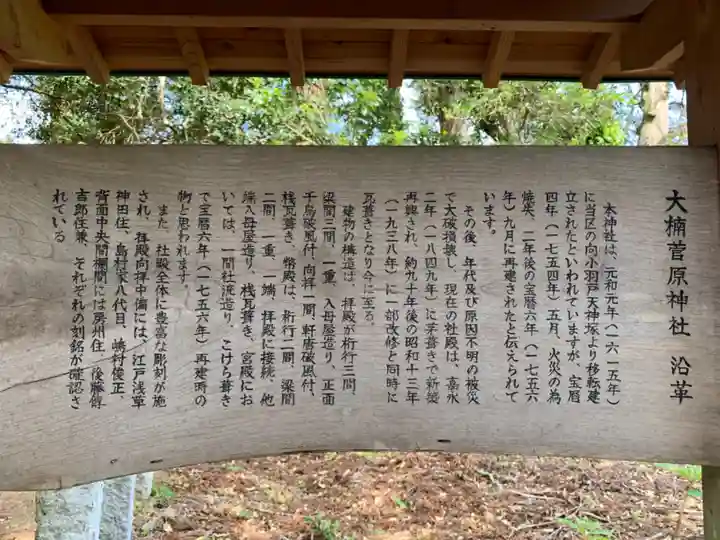 大楠菅原神社 沿革
本神社は、元和元年（一六一五年）
に当区の向小羽戸天神塚より移転建
立されたといわれていますが、宝暦
四年（一七五四年）五月、火災の為
焼失、二年後の宝暦六年（一七五六
年）九月に再建されたと伝えられて
います。
その後、年代及び原因不明の被災
で大破損壊し、現在の社殿は、嘉永
二年（一八四九年）に茅葺きで新築
再興され、約九十年後の昭和十三年
（一九三八年）に一部改修と同時に
瓦葺きとなり今に至る。
建物の構造は、拝殿が桁行三間、
梁間三間、一重、入母屋造り、正面
千鳥破風付、向拝一間、軒唐破風付、
桟瓦葺き、幣殿は、桁行二間、梁間
二間、一重、一端、拝殿に接続、他
端入母屋造り、桟瓦葺き、宮殿にお
いては、一間社流造り、こけら葺き
で宝暦六年（一七五六年）再建時の
物と思われます。
また、社殿全体に豊富な彫刻が施
され、拝殿向拝中備には、江戸浅草
神田住、島村家八代目、嶋村俊正
背面中央間欄間には房州住、後藤
吉郎住兼、それぞれの刻銘が確認さ
れている